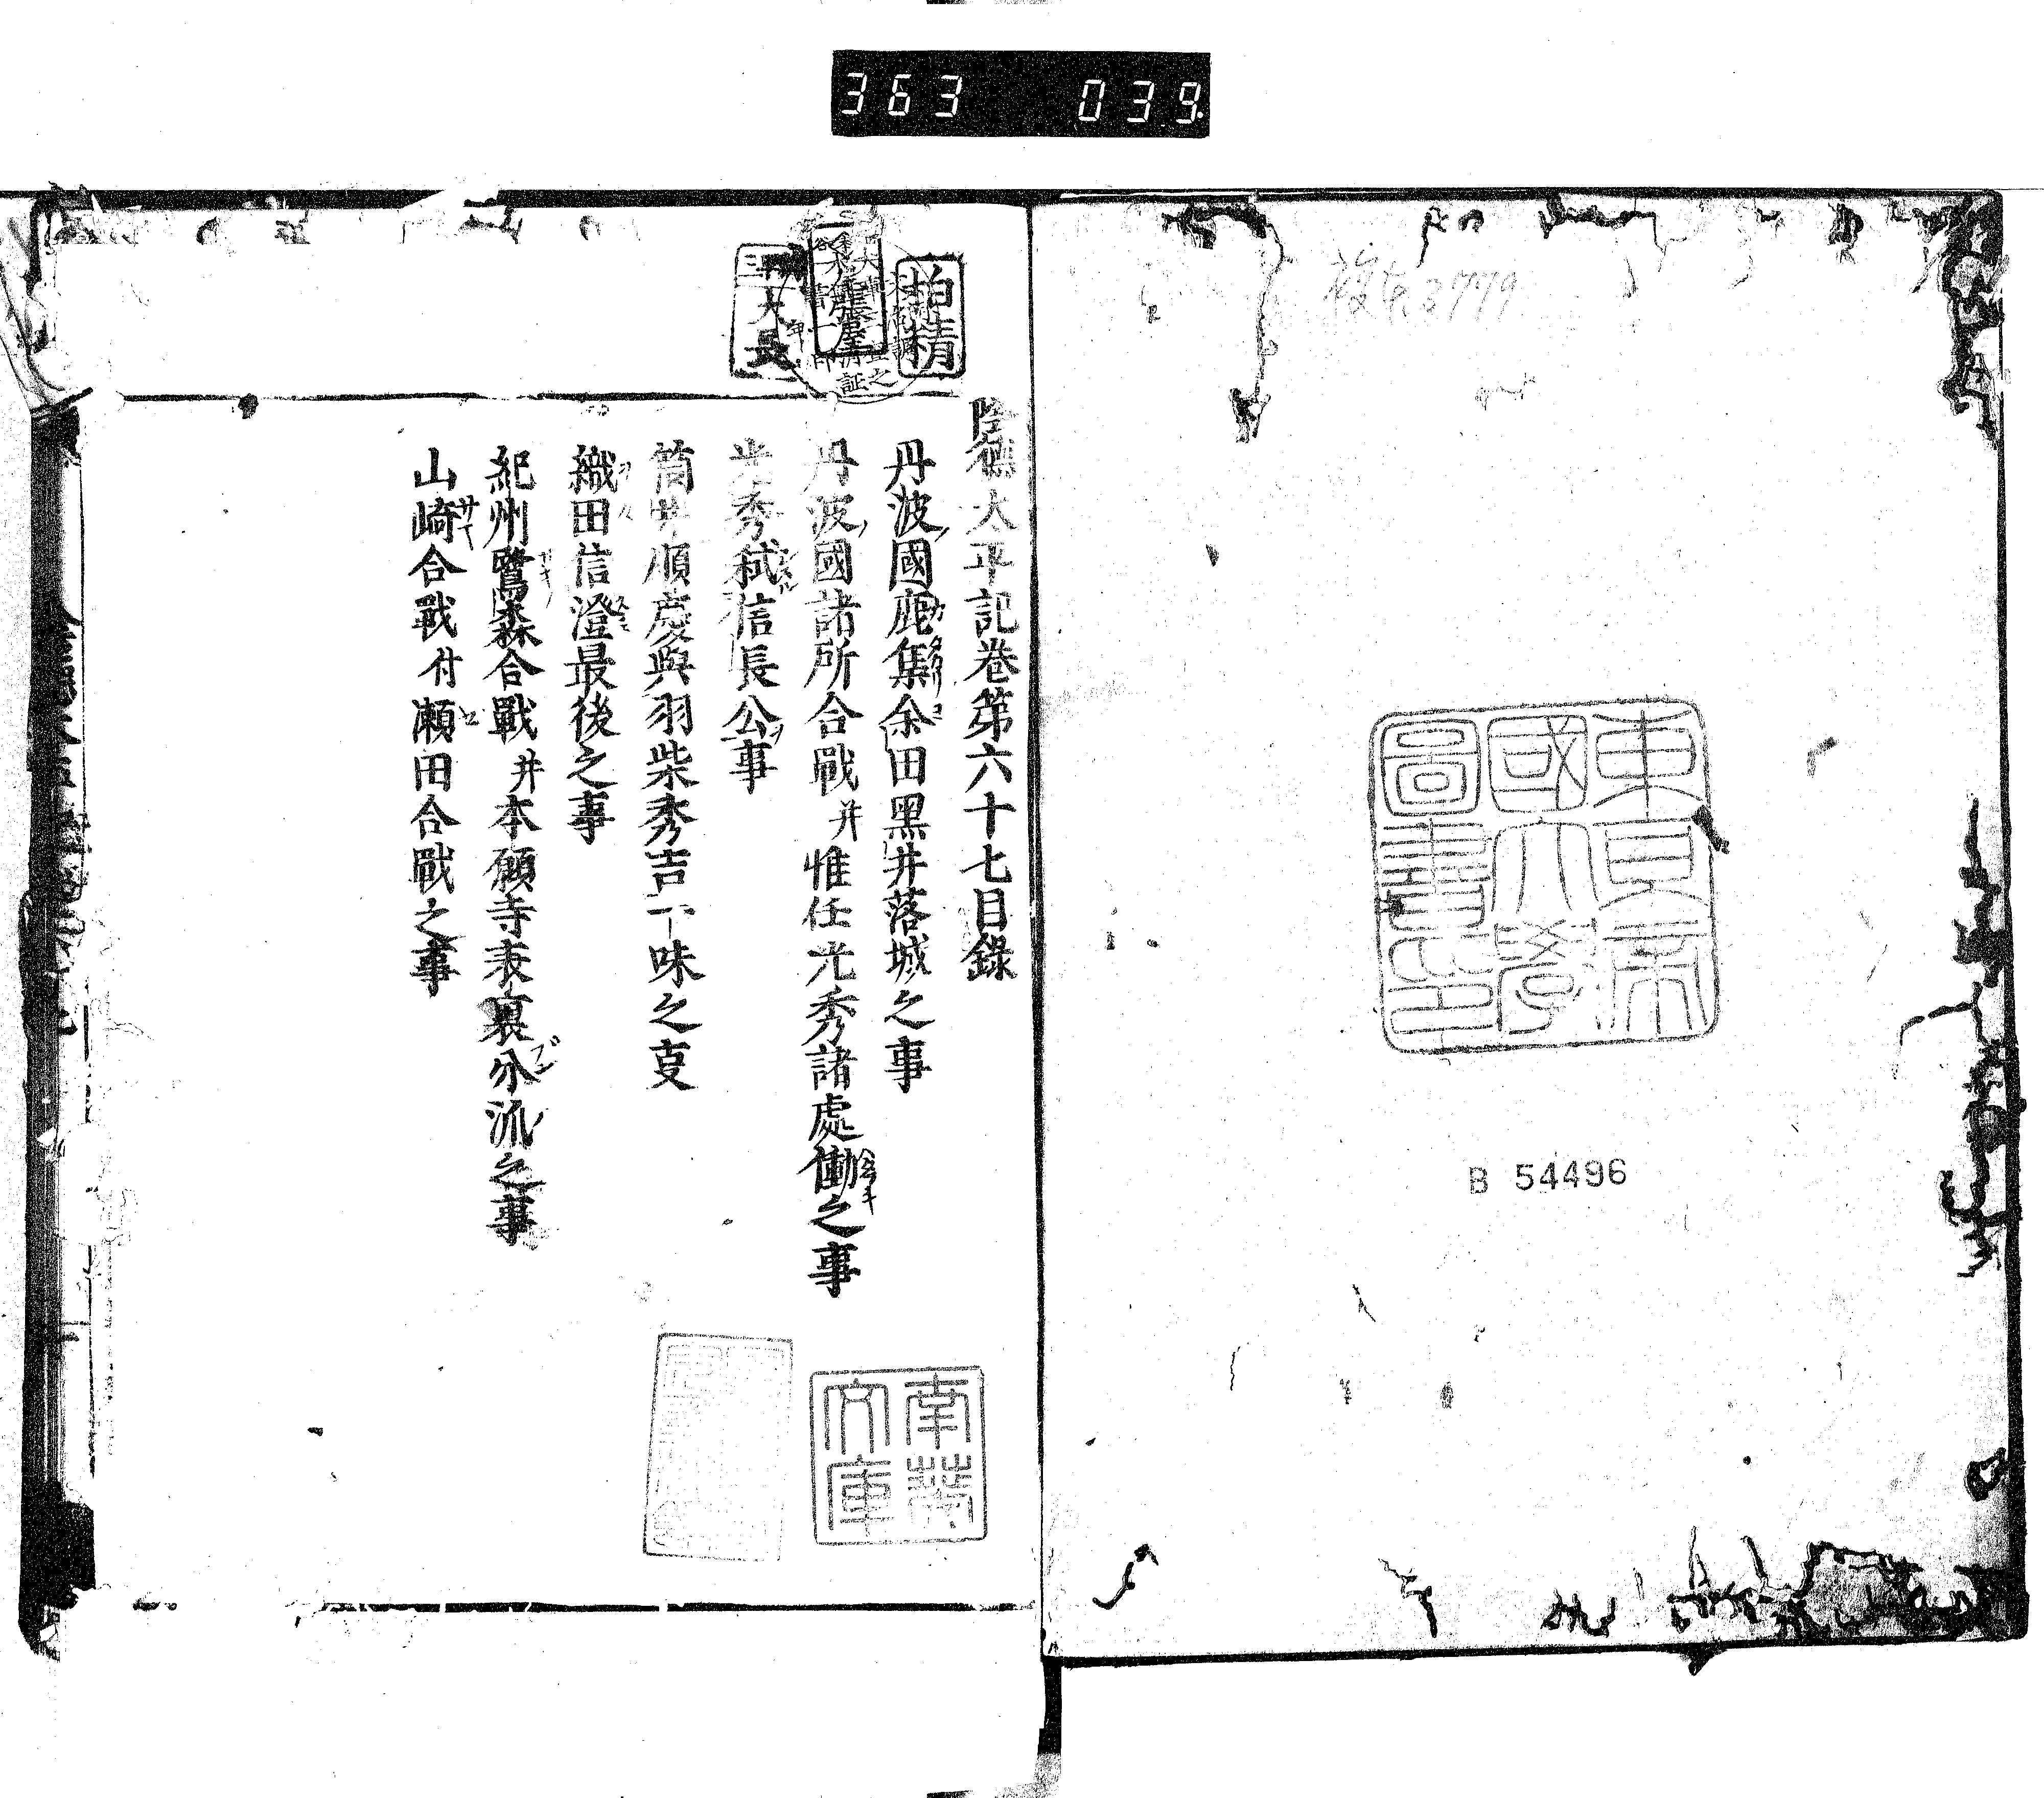 363 039
東京帝
國大學
圖書印
B 54496
柏精
陰德太平記卷第六十七目錄
丹波國鹿集余田黑井落城之事
丹波國諸所合戰并惟任光秀諸處働之事
光秀弑信長公事
筒井順慶與羽柴秀吉一味之叓
織田信澄最後之事
紀州鷺森合戰并本願寺表裏分流之事
山崎合戰付瀬田合戰之事
南葵
文庫